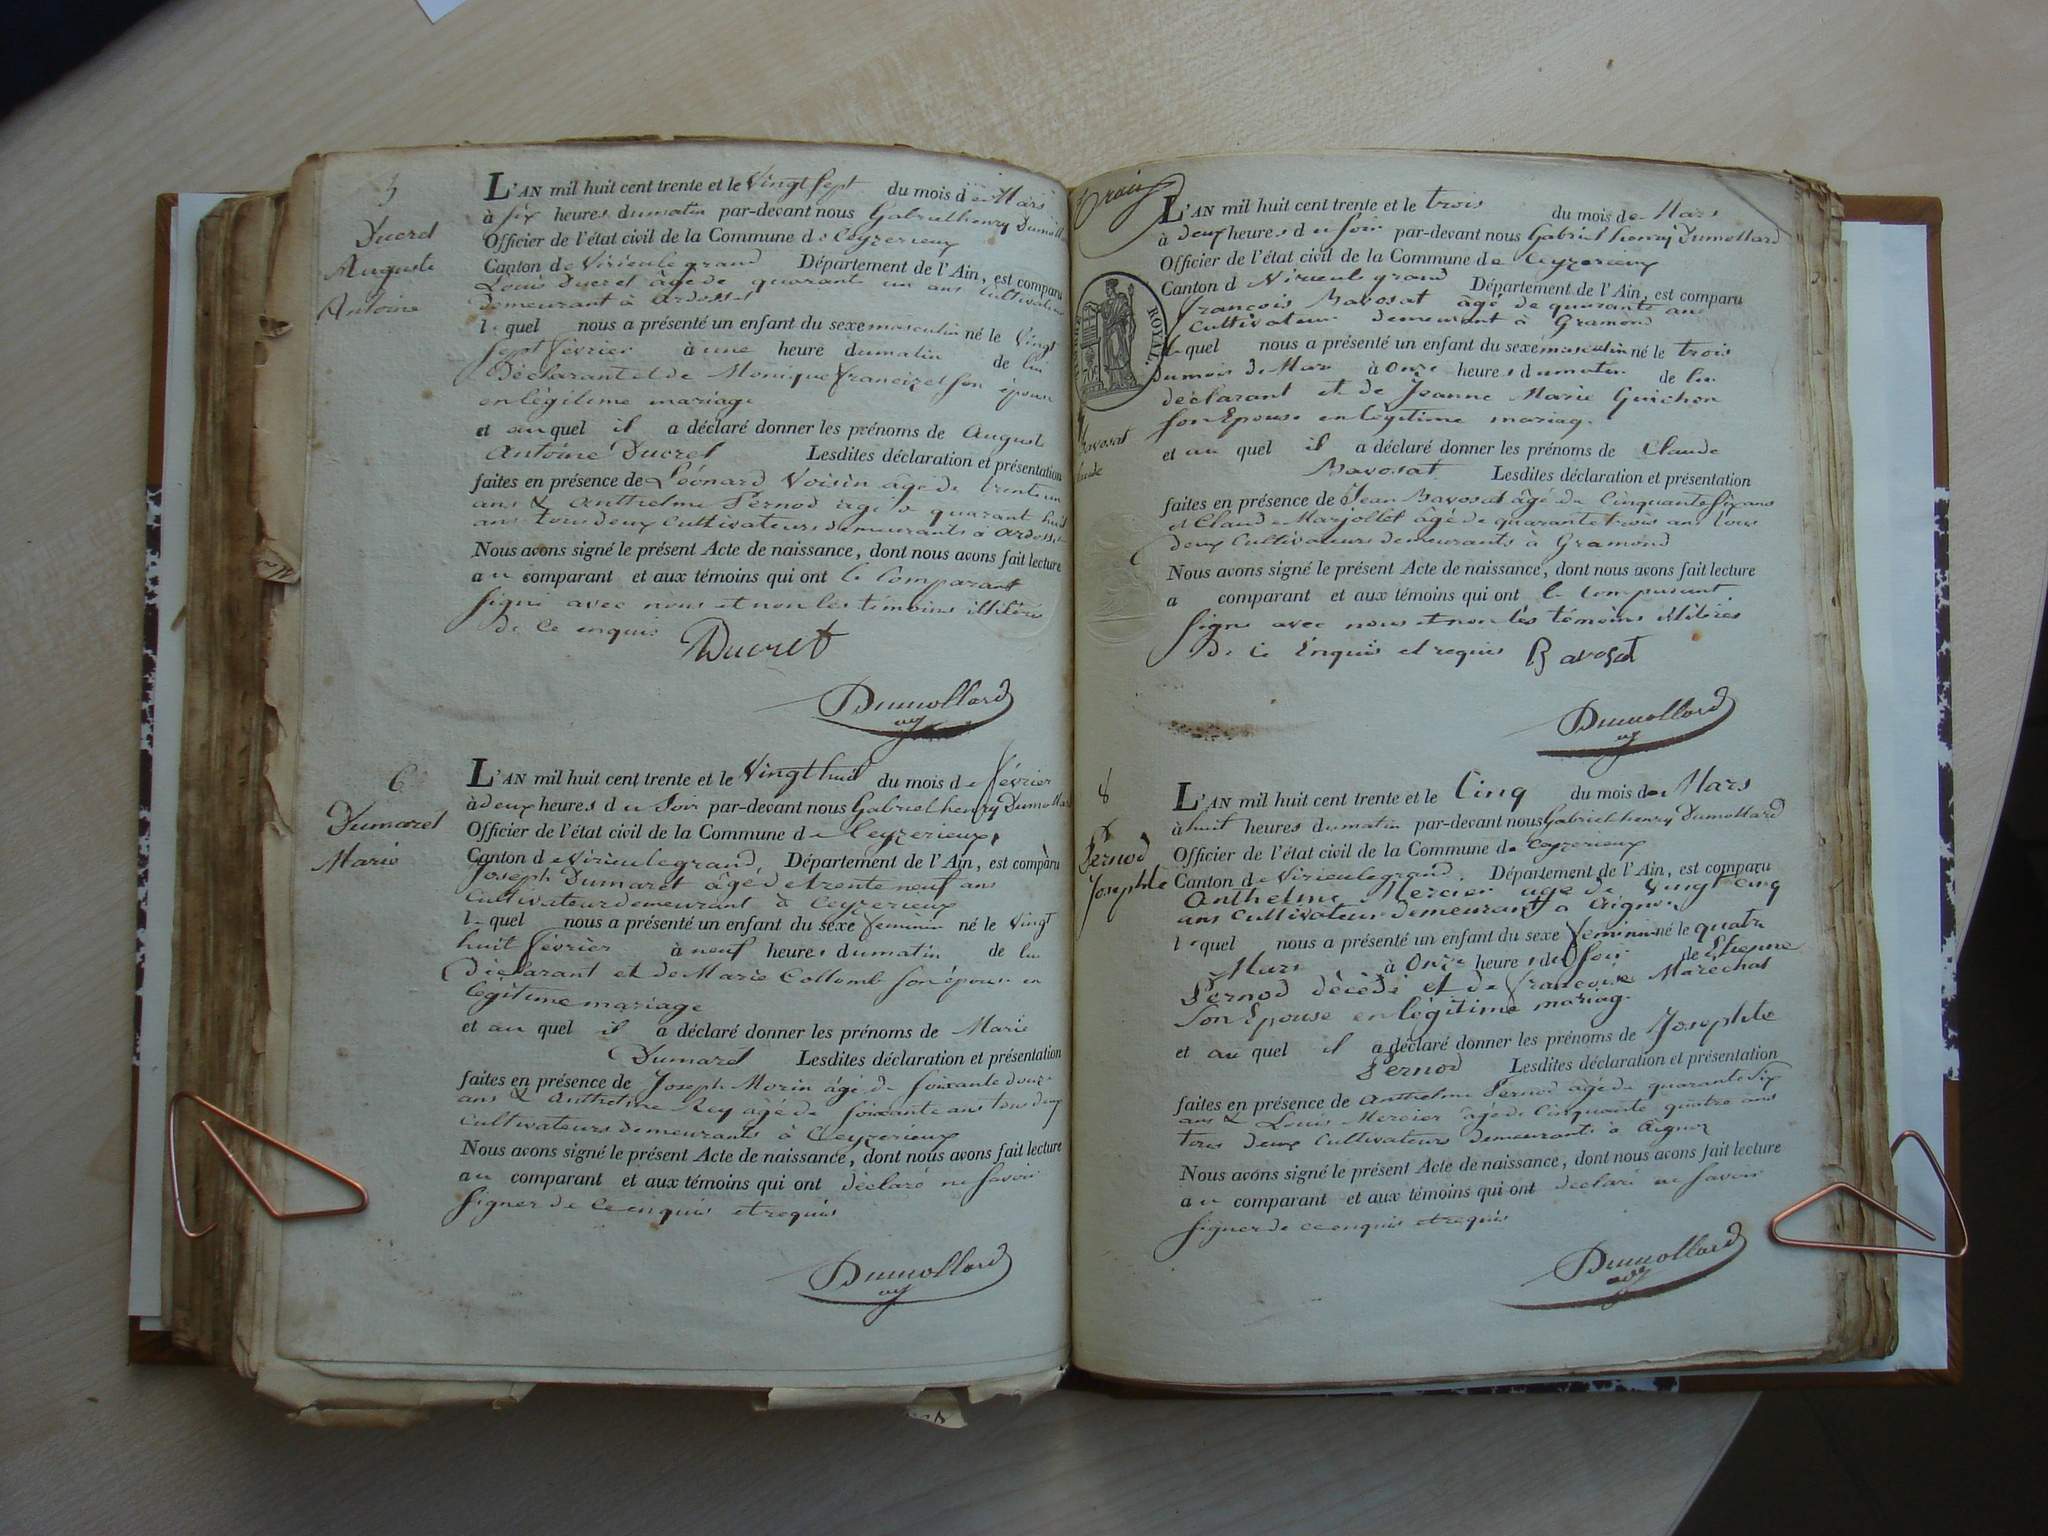 5
Ducret
Auguste
Antoine
L'AN mil huit cent trente et le Vingt Sept du mois de Mars
à Six heures du matin par-devant nous Gabriel henry Dumollard
Officier de l'état civil de la Commune de Ceyzerieux
Canton de Virieulegrand Département de l'Ain, est comparu
Louis Ducret âgé de quarante un ans Cultivateur
demeurant à Ardosset
le quel nous a présenté un enfant du sexe masculin né le Vingt
Sept février à une heure du matin de lui
Déclarant et de Monique francizet son épouse
en légitime mariage
et au quel il a déclaré donner les prénoms de Auguste
Antoine Ducret Lesdites déclaration et présentation
faites en présence de Léonard Voisin âgé de trente un
ans & Anthelme Pernod âgé de quarant huit
ans tous deux Cultivateurs demeurants à Ardosset
Nous avons signé le présent Acte de naissance, dont nous avons fait lecture
au comparant et aux témoins qui ont le Comparant
Signé avec nous et non les témoins illitérés
de Ce enquis Ducret
Dumollard
6
Dumaret
Marie
L'AN mil huit cent trente et le Vingt huit du mois de février
à deux heures du Soir par-devant nous Gabriel henry Dumollard
Officier de l'état civil de la Commune de Ceyzerieux
Canton de Virieulegrand Département de l'Ain, est comparu
Joseph Dumaret âgé de trente neuf ans
Cultivateur demeurant à Ceyzerieux
le quel nous a présenté un enfant du sexe feminin né le Vingt
huit février à neuf heures du matin de lui
Déclarant et de Marie Collomb son épouse en
légitime mariage
et au quel il a déclaré donner les prénoms de Marie
Dumaret Lesdites déclaration et présentation
faites en présence de Joseph Morin âgé de soixante douze
ans & Anthelme Rey âgé de soixante ans tous deux
Cultivateurs demeurants à Ceyzerieux
Nous avons signé le présent Acte de naissance, dont nous avons fait lecture
au comparant et aux témoins qui ont déclaré ne savoir
Signer de ce enquis et requis
Dumollard
ROYAL
Bavosat
Claude
L'AN mil huit cent trente et le trois du mois de Mars
à deux heures du Soir par-devant nous Gabriel henry Dumollard
Officier de l'état civil de la Commune de Ceyzerieux
Canton de Virieulegrand Département de l'Ain, est comparu
François Bavosat âgé de quarante ans
Cultivateur demeurant à Gramond
le quel nous a présenté un enfant du sexe masculin né le trois
du mois de Mars à Onze heures du matin de lui
déclarant et de Jeanne Marie Guichon
son Epouse en légitime mariage
et au quel il a déclaré donner les prénoms de Claude
Bavosat Lesdites déclaration et présentation
faites en présence de Jean Bavosat âgé de Cinquante Six ans
et Claude Marjollet âgé de quarante trois ans tous
deux Cultivateurs demeurants à Gramond
Nous avons signé le présent Acte de naissance, dont nous avons fait lecture
a comparant et aux témoins qui ont le comparant
Signé avec nous et non les témoins illitérés
de Ce Enquis et requis Bavosat
Dumollard
8
Pernod
Josephte
L'AN mil huit cent trente et le Cinq du mois de Mars
à huit heures du matin par-devant nous Gabriel henry Dumollard
Officier de l'état civil de la Commune de Ceyzerieux
Canton de Virieulegrand Département de l'Ain, est comparu
Anthelme Mercier agé de Vingt Cinq
ans Cultivateur demeurant à Aignoz
le quel nous a présenté un enfant du sexe feminin né le quatre
Mars à Onze heures du Soir de Etienne
Pernod décédé et de francoise Maréchal
Son Epouse en légitime mariage
et au quel il a déclaré donner les prénoms de Josephte
Pernod Lesdites déclaration et présentation
faites en présence de Anthelme Pernod âgé de quarante Six
ans & Louis Mercier âgé de Cinquante quatre ans
tous deux Cultivateurs demeurants à Aignoz
Nous avons signé le présent Acte de naissance, dont nous avons fait lecture
au comparant et aux témoins qui ont déclaré ne savoir
Signer de ce enquis et requis
Dumollard